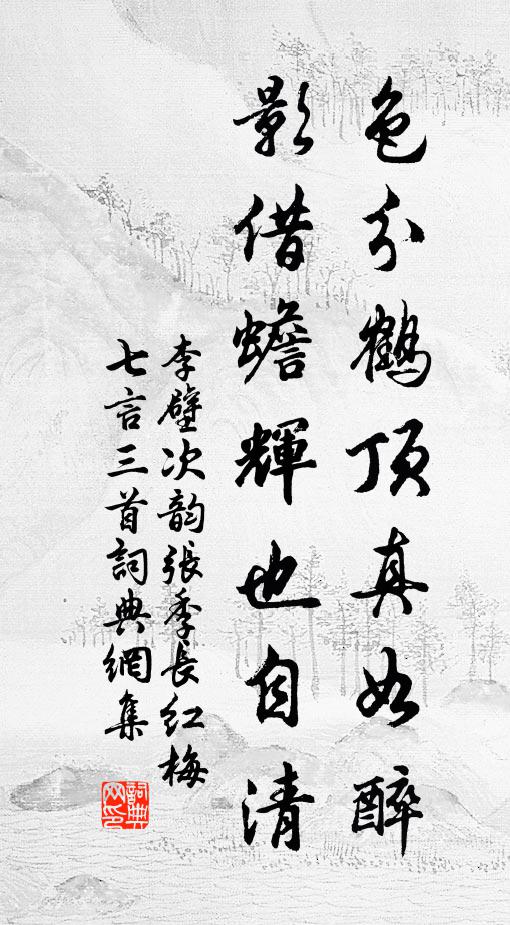 色分鶴頂真如醉
影借蟾輝也自清
李壁次韵張季長紅梅
七言三首詞典網集
詞典网印